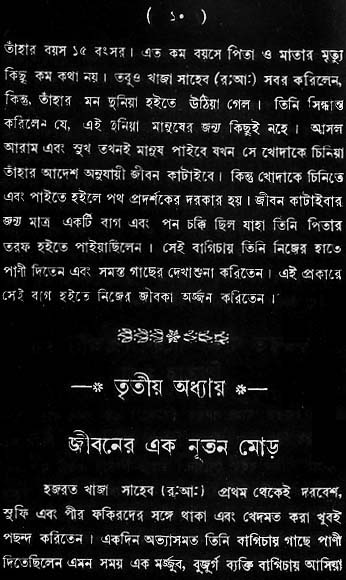 ( ১০ )
তাঁহার বয়স ১৫ বৎসর। এত কম বয়সে পিতা ও মাতার মৃত্যু
কিছু কম কথা নয়। তবুও খাজা সাহেব (র:আ:) সবর করিলেন,
কিন্তু, তাঁহার মন দুনিয়া হইতে উঠিয়া গেল। তিনি সিদ্ধান্ত
করিলেন যে, এই দুনিয়া মানুষের জন্য কিছুই নহে। আসল
আরাম এবং সুখ তখনই মানুষ পাইবে যখন সে খোদাকে চিনিয়া
তাঁহার আদেশ অনুযায়ী জীবন কাটাইবে। কিন্তু খোদাকে চিনিতে
এবং পাইতে হইলে পথ প্রদর্শকের দরকার হয়। জীবন কাটাইবার
জন্য মাত্র একটি বাগ এবং পন চক্কি ছিল যাহা তিনি পিতার
তরফ হইতে পাইয়াছিলেন। সেই বাগিচায় তিনি নিজের হাতে
পাণী দিতেন এবং সমস্ত গাছের দেখাশুনা করিতেন। এই প্রকারে
সেই বাগ হইতে নিজের জীবকা অর্জ্জন করিতেন।
—* তৃতীয় অধ্যায় *—
জীবনের এক নূতন মোড়
হজরত খাজা সাহেব (র:আ:) প্রথম থেকেই দরবেশ,
সুফি এবং পীর ফকিরদের সঙ্গে থাকা এবং খেদমত করা খুবই
পছন্দ করিতেন। একদিন অভ্যাসমত তিনি বাগিচায় গাছে পাণী
দিতেছিলেন এমন সময় এক মর্জ্জুব, বুজুর্গ ব্যক্তি বাগিচায় আসিয়া